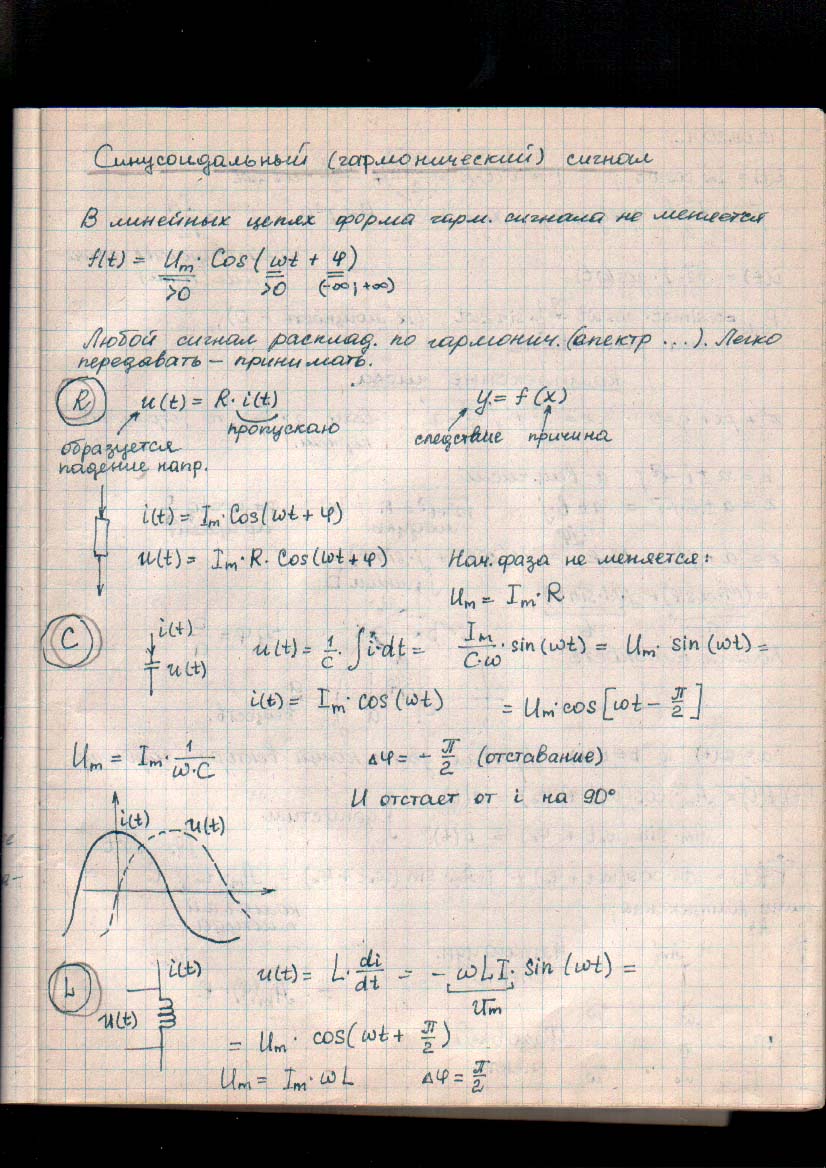 Синусоидальный (гармонический) сигнал
В линейных цепях форма гарм. сигнала не меняется
f(t) = Um · Cos(ωt + φ)
>0 >0 (-∞; +∞)
Любой сигнал расклад. по гармонич. (спектр ...). Легко
передавать – принимать.
R u(t) = R · i(t) y = f(x)
пропускаю следствие причина
образуется
падение напр.
i(t) = Im · Cos(ωt + φ)
u(t) = Im · R · Cos(ωt + φ) Нач. фаза не меняется:
Um = Im · R
C i(t) u(t) u(t) = 1/C · ∫i·dt = Im/(C·ω) · sin(ωt) = Um · sin(ωt) =
i(t) = Im · cos(ωt) = Um · cos[ωt – π/2]
Um = Im · 1/(ω·C) Δφ = – π/2 (отставание)
U отстает от i на 90°
i(t) u(t)
L i(t) u(t) u(t) = L · di/dt = – ωLI · sin(ωt) =
Um
= Um · cos(ωt + π/2)
Um = Im · ωL Δφ = π/2